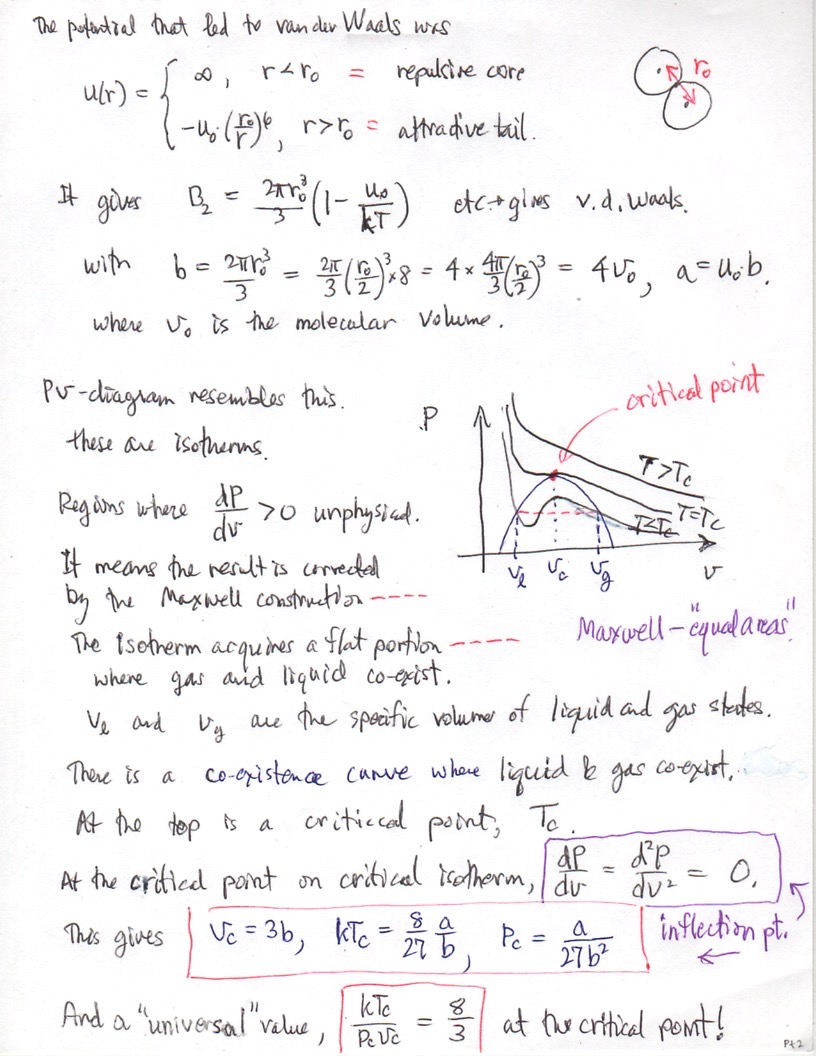 The potential that led to van der Waals was
u(r) = { ∞, r < r₀ = repulsive core
-u₀(r₀/r)⁶, r > r₀ = attractive tail.
r₀
It gives B₂ = 2πr₀³/3 (1 - u₀/kT) etc → gives v.d. Waals.
with b = 2πr₀³/3 = 2π/3 (r₀/2)³ × 8 = 4 × 4π/3 (r₀/2)³ = 4v₀, a = u₀b.
where v₀ is the molecular volume.
Pv-diagram resembles this.
these are isotherms.
critical point
P
T > Tc
T = Tc
T < Tc
v_l v_c v_g v
Regions where dP/dv > 0 unphysical.
It means the result is corrected
by the Maxwell construction ----
Maxwell - "equal areas".
The isotherm acquires a flat portion ----
where gas and liquid co-exist.
v_l and v_g are the specific volumes of liquid and gas states.
There is a co-existence curve where liquid & gas co-exist.
At the top is a criticcal point, Tc.
At the critical point on critical isotherm, dP/dv = d²P/dv² = 0.
This gives v_c = 3b, kTc = 8/27 a/b, Pc = a/27b²
inflection pt.
And a "universal" value, kTc/Pcvc = 8/3 at the critical point!
Pt 2